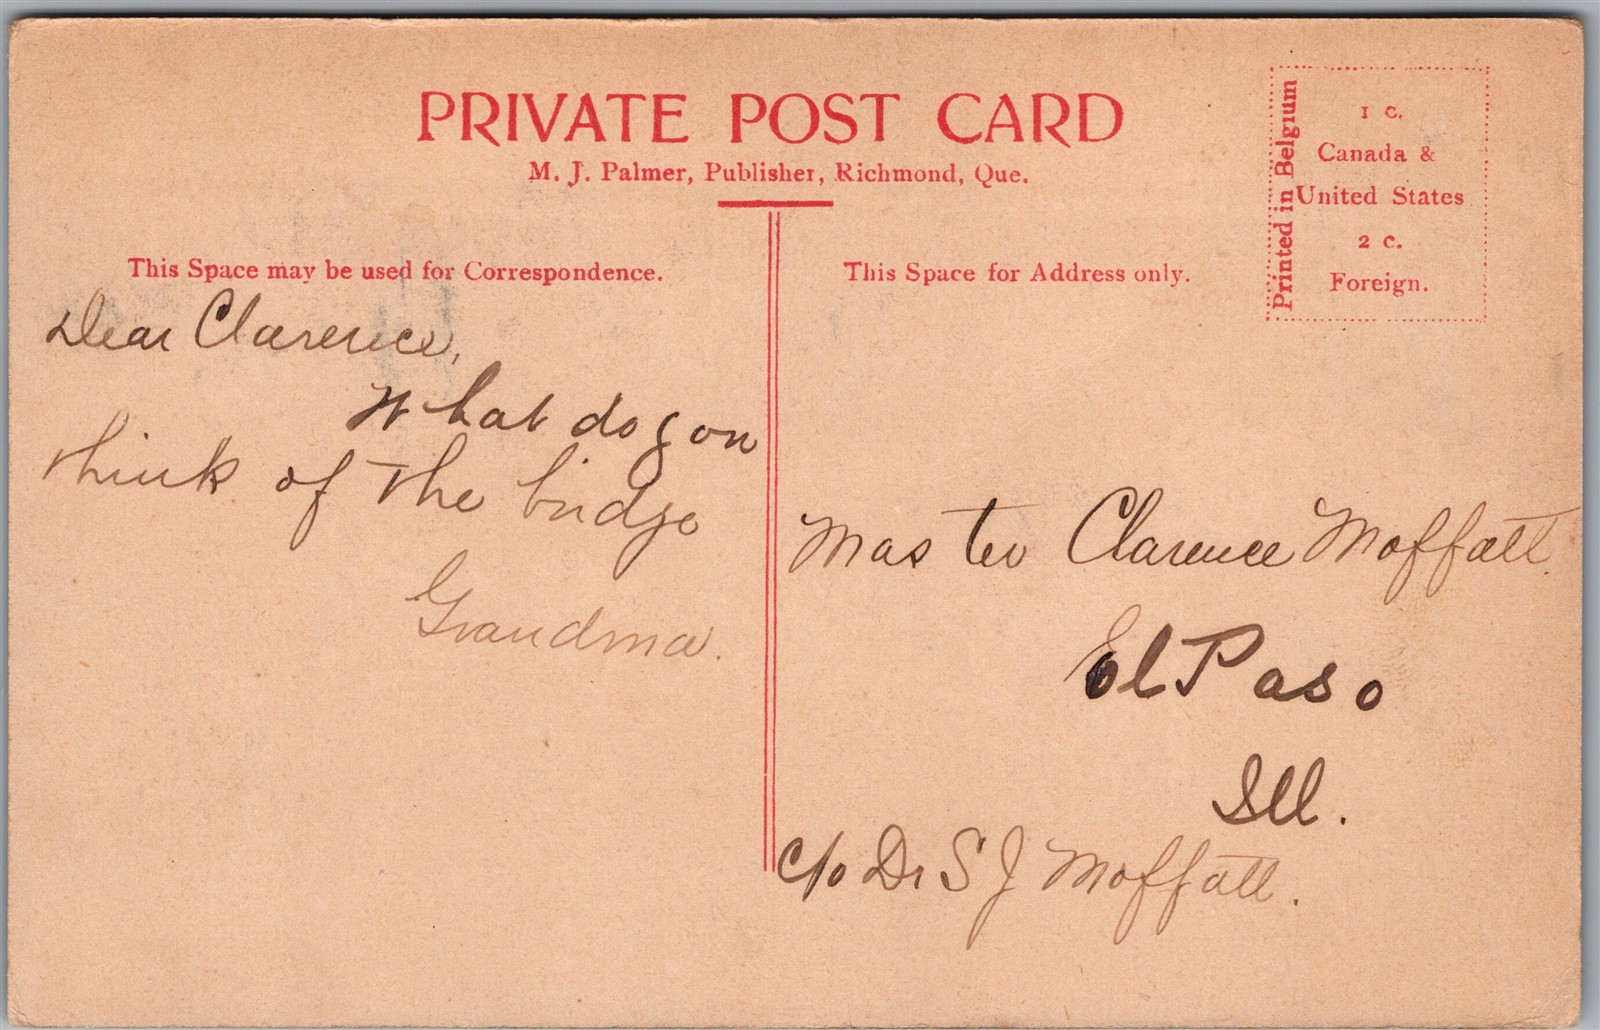 PRIVATE POST CARD
M. J. Palmer, Publisher, Richmond, Que.
Printed in Belgium
1 C.
Canada &
United States
2 C.
Foreign.
This Space may be used for Correspondence.
This Space for Address only.
Dear Clarence,
What do you
think of the bridge
Grandma.
Master Clarence Moffatt.
El Paso
Ill.
c/o Dr S J Moffatt.